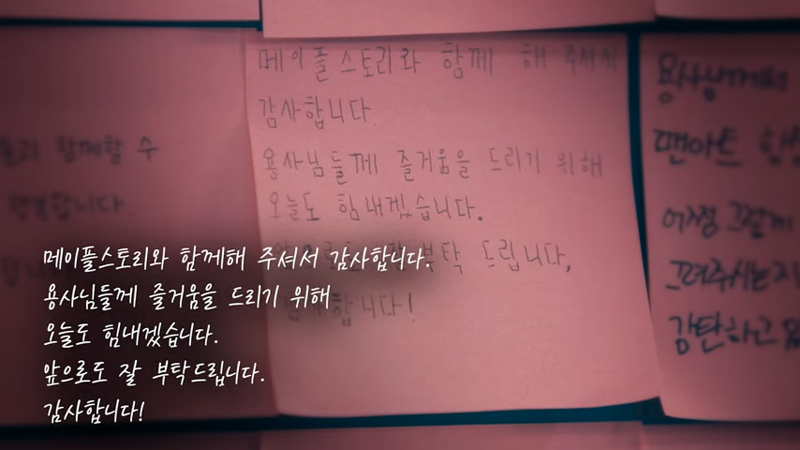 함께할 수
행복합니다.
메이플스토리와 함께 해 주셔서
감사합니다.
용사님들께 즐거움을 드리기 위해
오늘도 힘내겠습니다.
부탁 드립니다,
용사님께서
팬아트
어쩜 그렇게
그려주시는지
감탄하고
메이플스토리와 함께해 주셔서 감사합니다.
용사님들께 즐거움을 드리기 위해
오늘도 힘내겠습니다.
앞으로도 잘 부탁드립니다.
감사합니다!